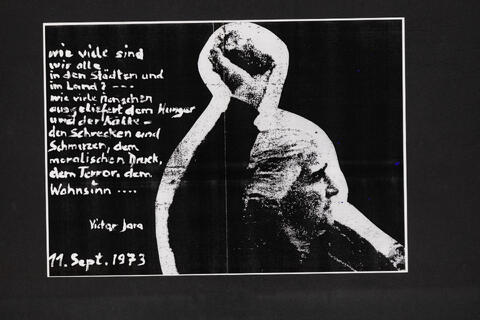 wie viele sind
wir alle
in den Städten und
im Land? ----
wie viele Menschen
ausgeliefert dem Hunger
und der Kälte -
den Schrecken und
Schmerzen, dem
moralischen Druck,
dem Terror. dem
Wahnsinn ....
Victor Jara
11. Sept. 1973